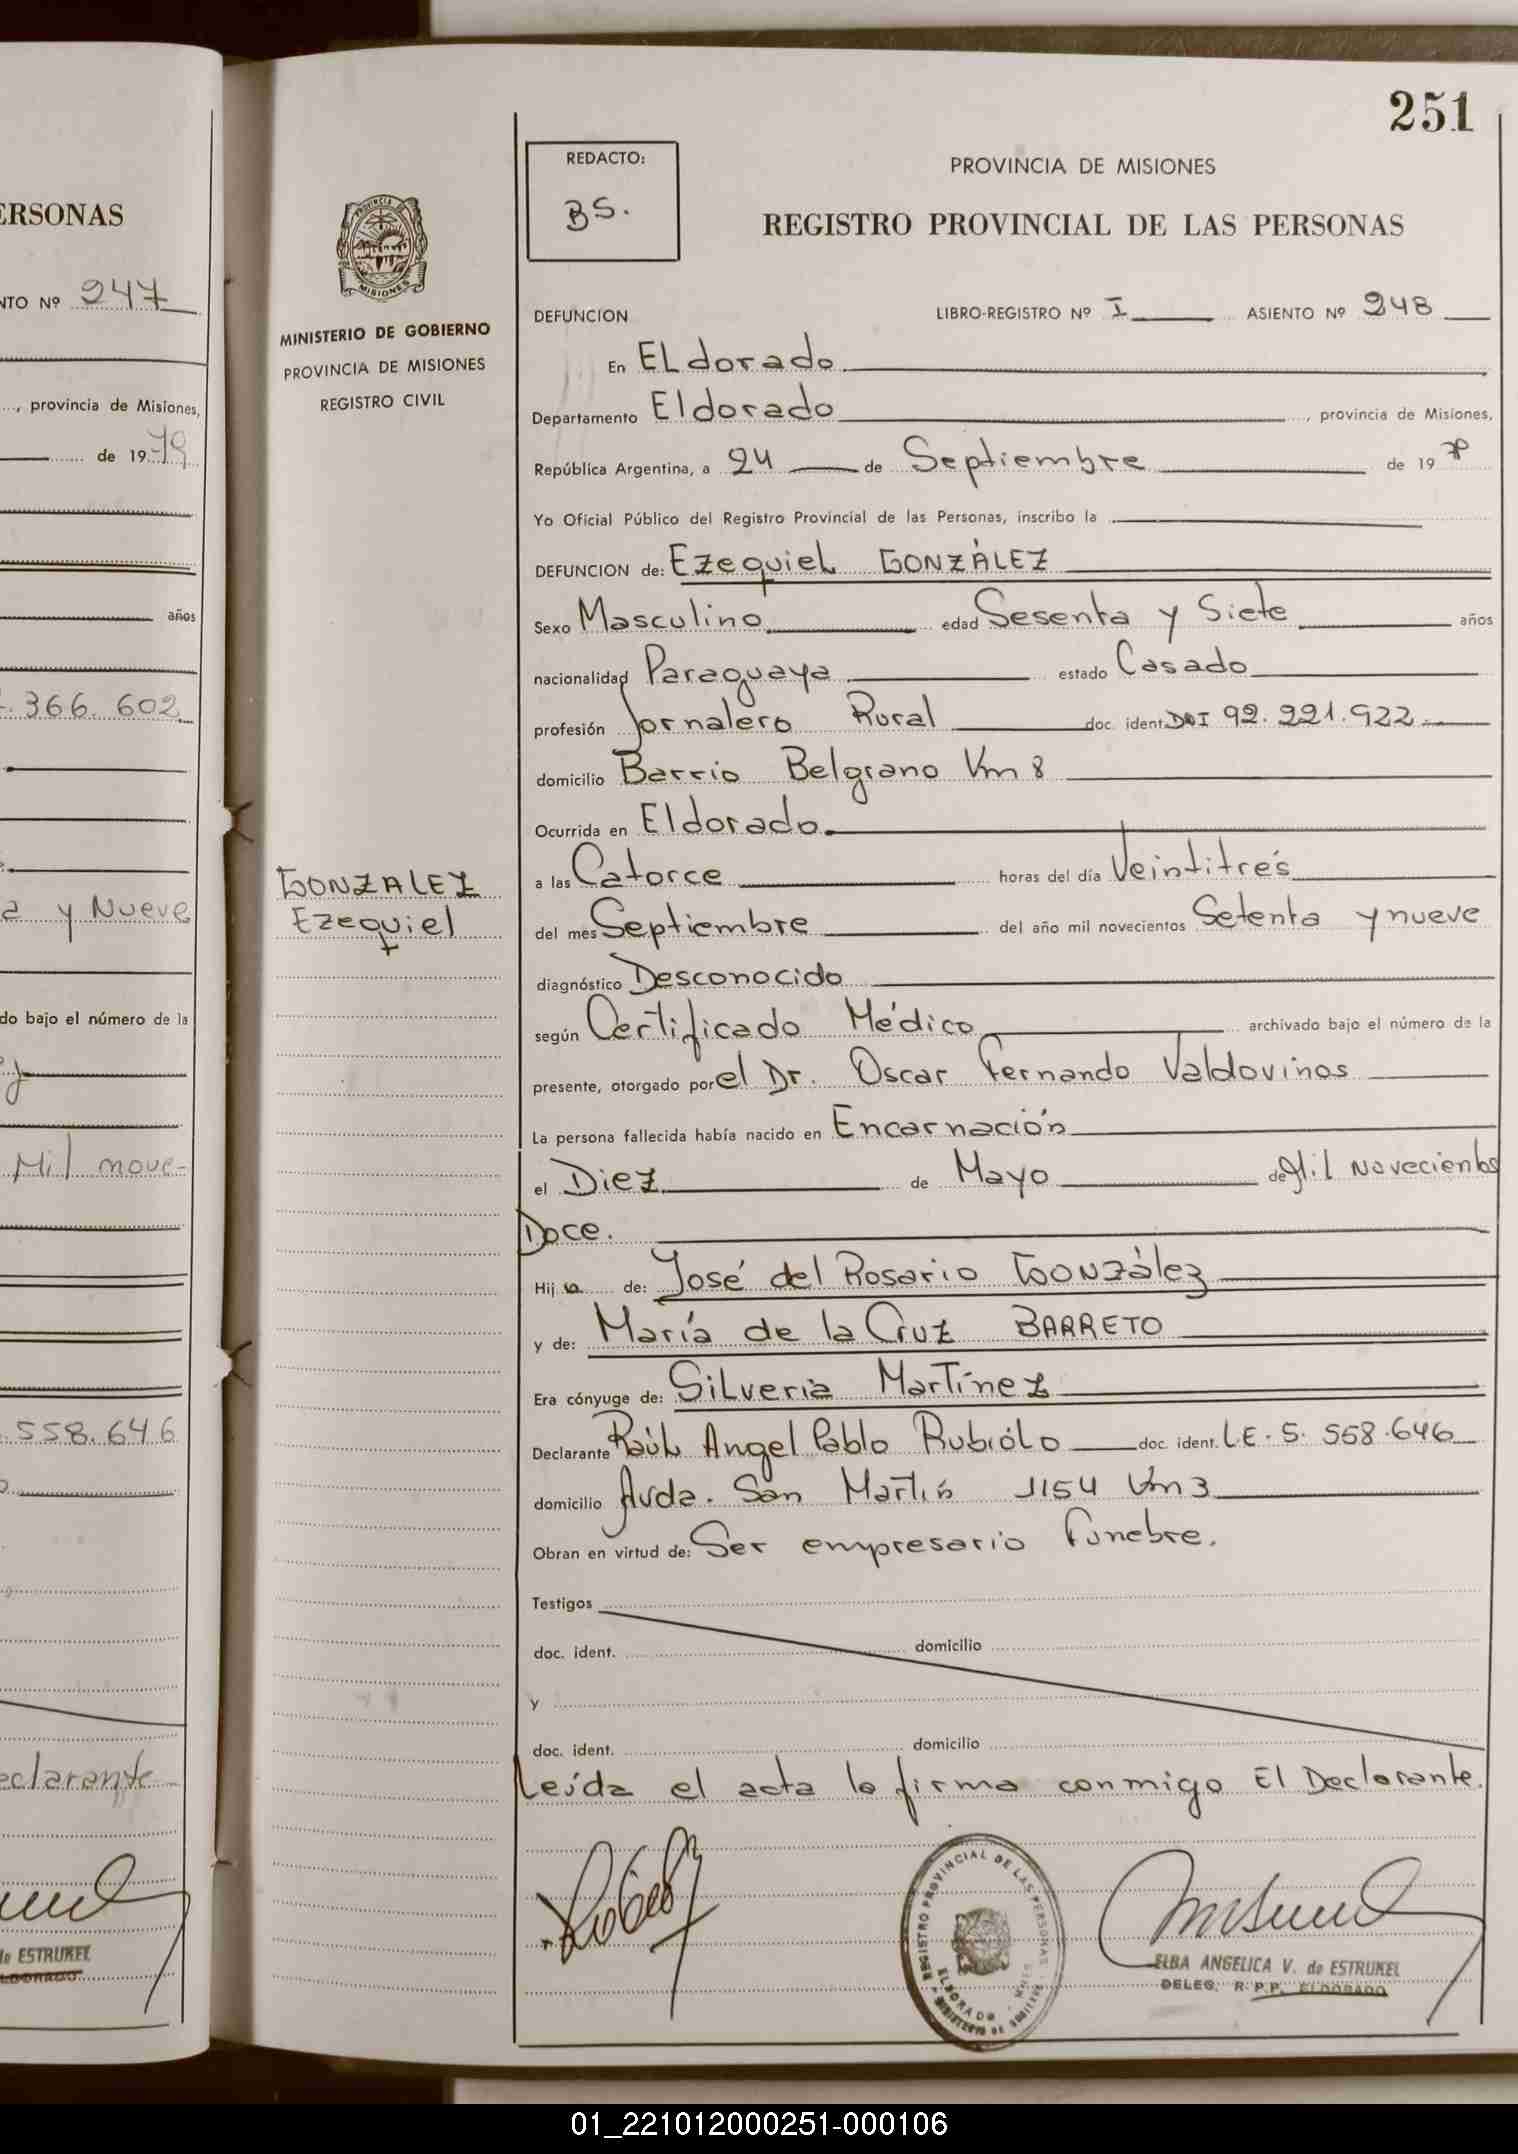 251
REDACTO:
BS.
PROVINCIA DE MISIONES
REGISTRO PROVINCIAL DE LAS PERSONAS
PROVINCIA DE
MISIONES
MINISTERIO DE GOBIERNO
PROVINCIA DE MISIONES
REGISTRO CIVIL
GONZALEZ
Ezequiel
DEFUNCION LIBRO-REGISTRO Nº I ASIENTO Nº 248
En ELdorado
Departamento Eldorado, provincia de Misiones,
República Argentina, a 24 de Septiembre de 19
Yo Oficial Público del Registro Provincial de las Personas, inscribo la
DEFUNCION de: Ezequiel GONZÁLEZ
Sexo Masculino edad Sesenta y Siete años
nacionalidad Paraguaya estado Casado
profesión Jornalero Rural doc. ident. DNI 92.221.922
domicilio Barrio Belgrano Km 8
Ocurrida en Eldorado.
a las Catorce horas del día Veintitrés
del mes Septiembre del año mil novecientos Setenta y nueve
diagnóstico Desconocido
según Certificado Médico archivado bajo el número de la
presente, otorgado por el Dr. Oscar Fernando Valdovinos
La persona fallecida había nacido en Encarnación
el Diez de Mayo de Mil Novecientos
Doce.
Hijo de: José del Rosario González
y de: María de la Cruz BARRETO
Era cónyuge de: Silveria Martínez
Declarante Raúl Angel Pablo Rubiólo doc. ident. L.E. 5.558.646
domicilio Avda. San Martín 1154 Km 3
Obran en virtud de: Ser empresario Funebre.
Testigos
doc. ident. domicilio
y
doc. ident. domicilio
Leída el acta la firma conmigo El Declarante.
REGISTRO PROVINCIAL DE LAS PERSONAS
ELDORADO
ELBA ANGELICA V. de ESTRUKEL
DELEG. R.P.P. ELDORADO
ERSONAS
NTO Nº 247
..., provincia de Misiones,
de 1979
años
.366.602
a y Nueve
do bajo el número de la
Mil nove-
.558.646
eclarante
de ESTRUKEL
ELDORADO
01_221012000251-000106